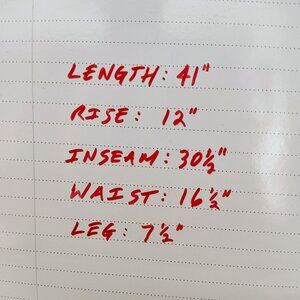 LENGTH: 41"
RISE: 12"
INSEAM: 30½"
WAIST: 16½"
LEG: 7½"